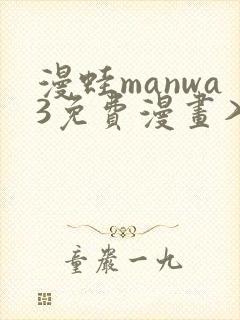 漫蛙manwa
3免費漫畫>
童嚴一九